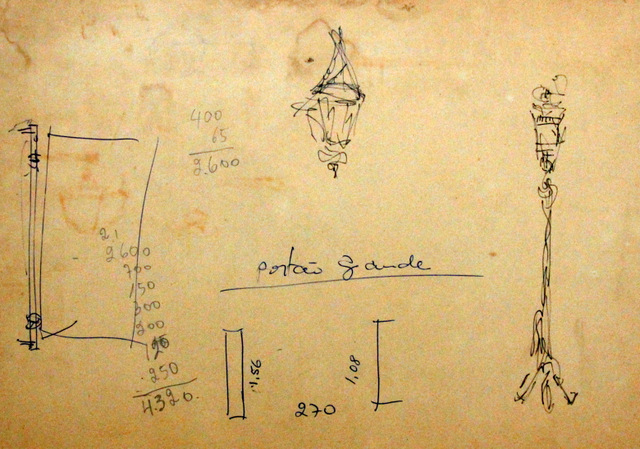 400
65
2.600
21
2600
700
150
300
200
120
250
4.320.
portão Grande
1,56
1,08
270